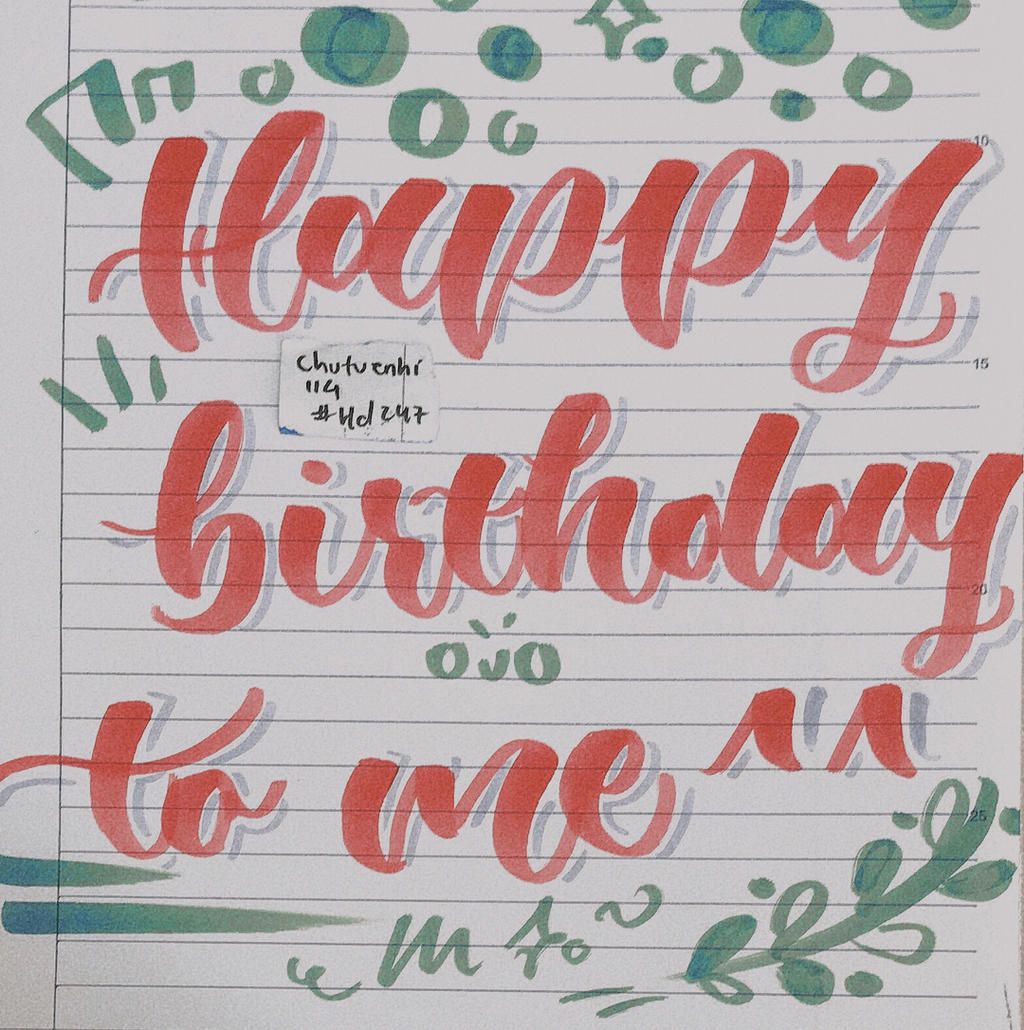 Happy
10
15
#Hd247
birthday
20
to me ^^
25